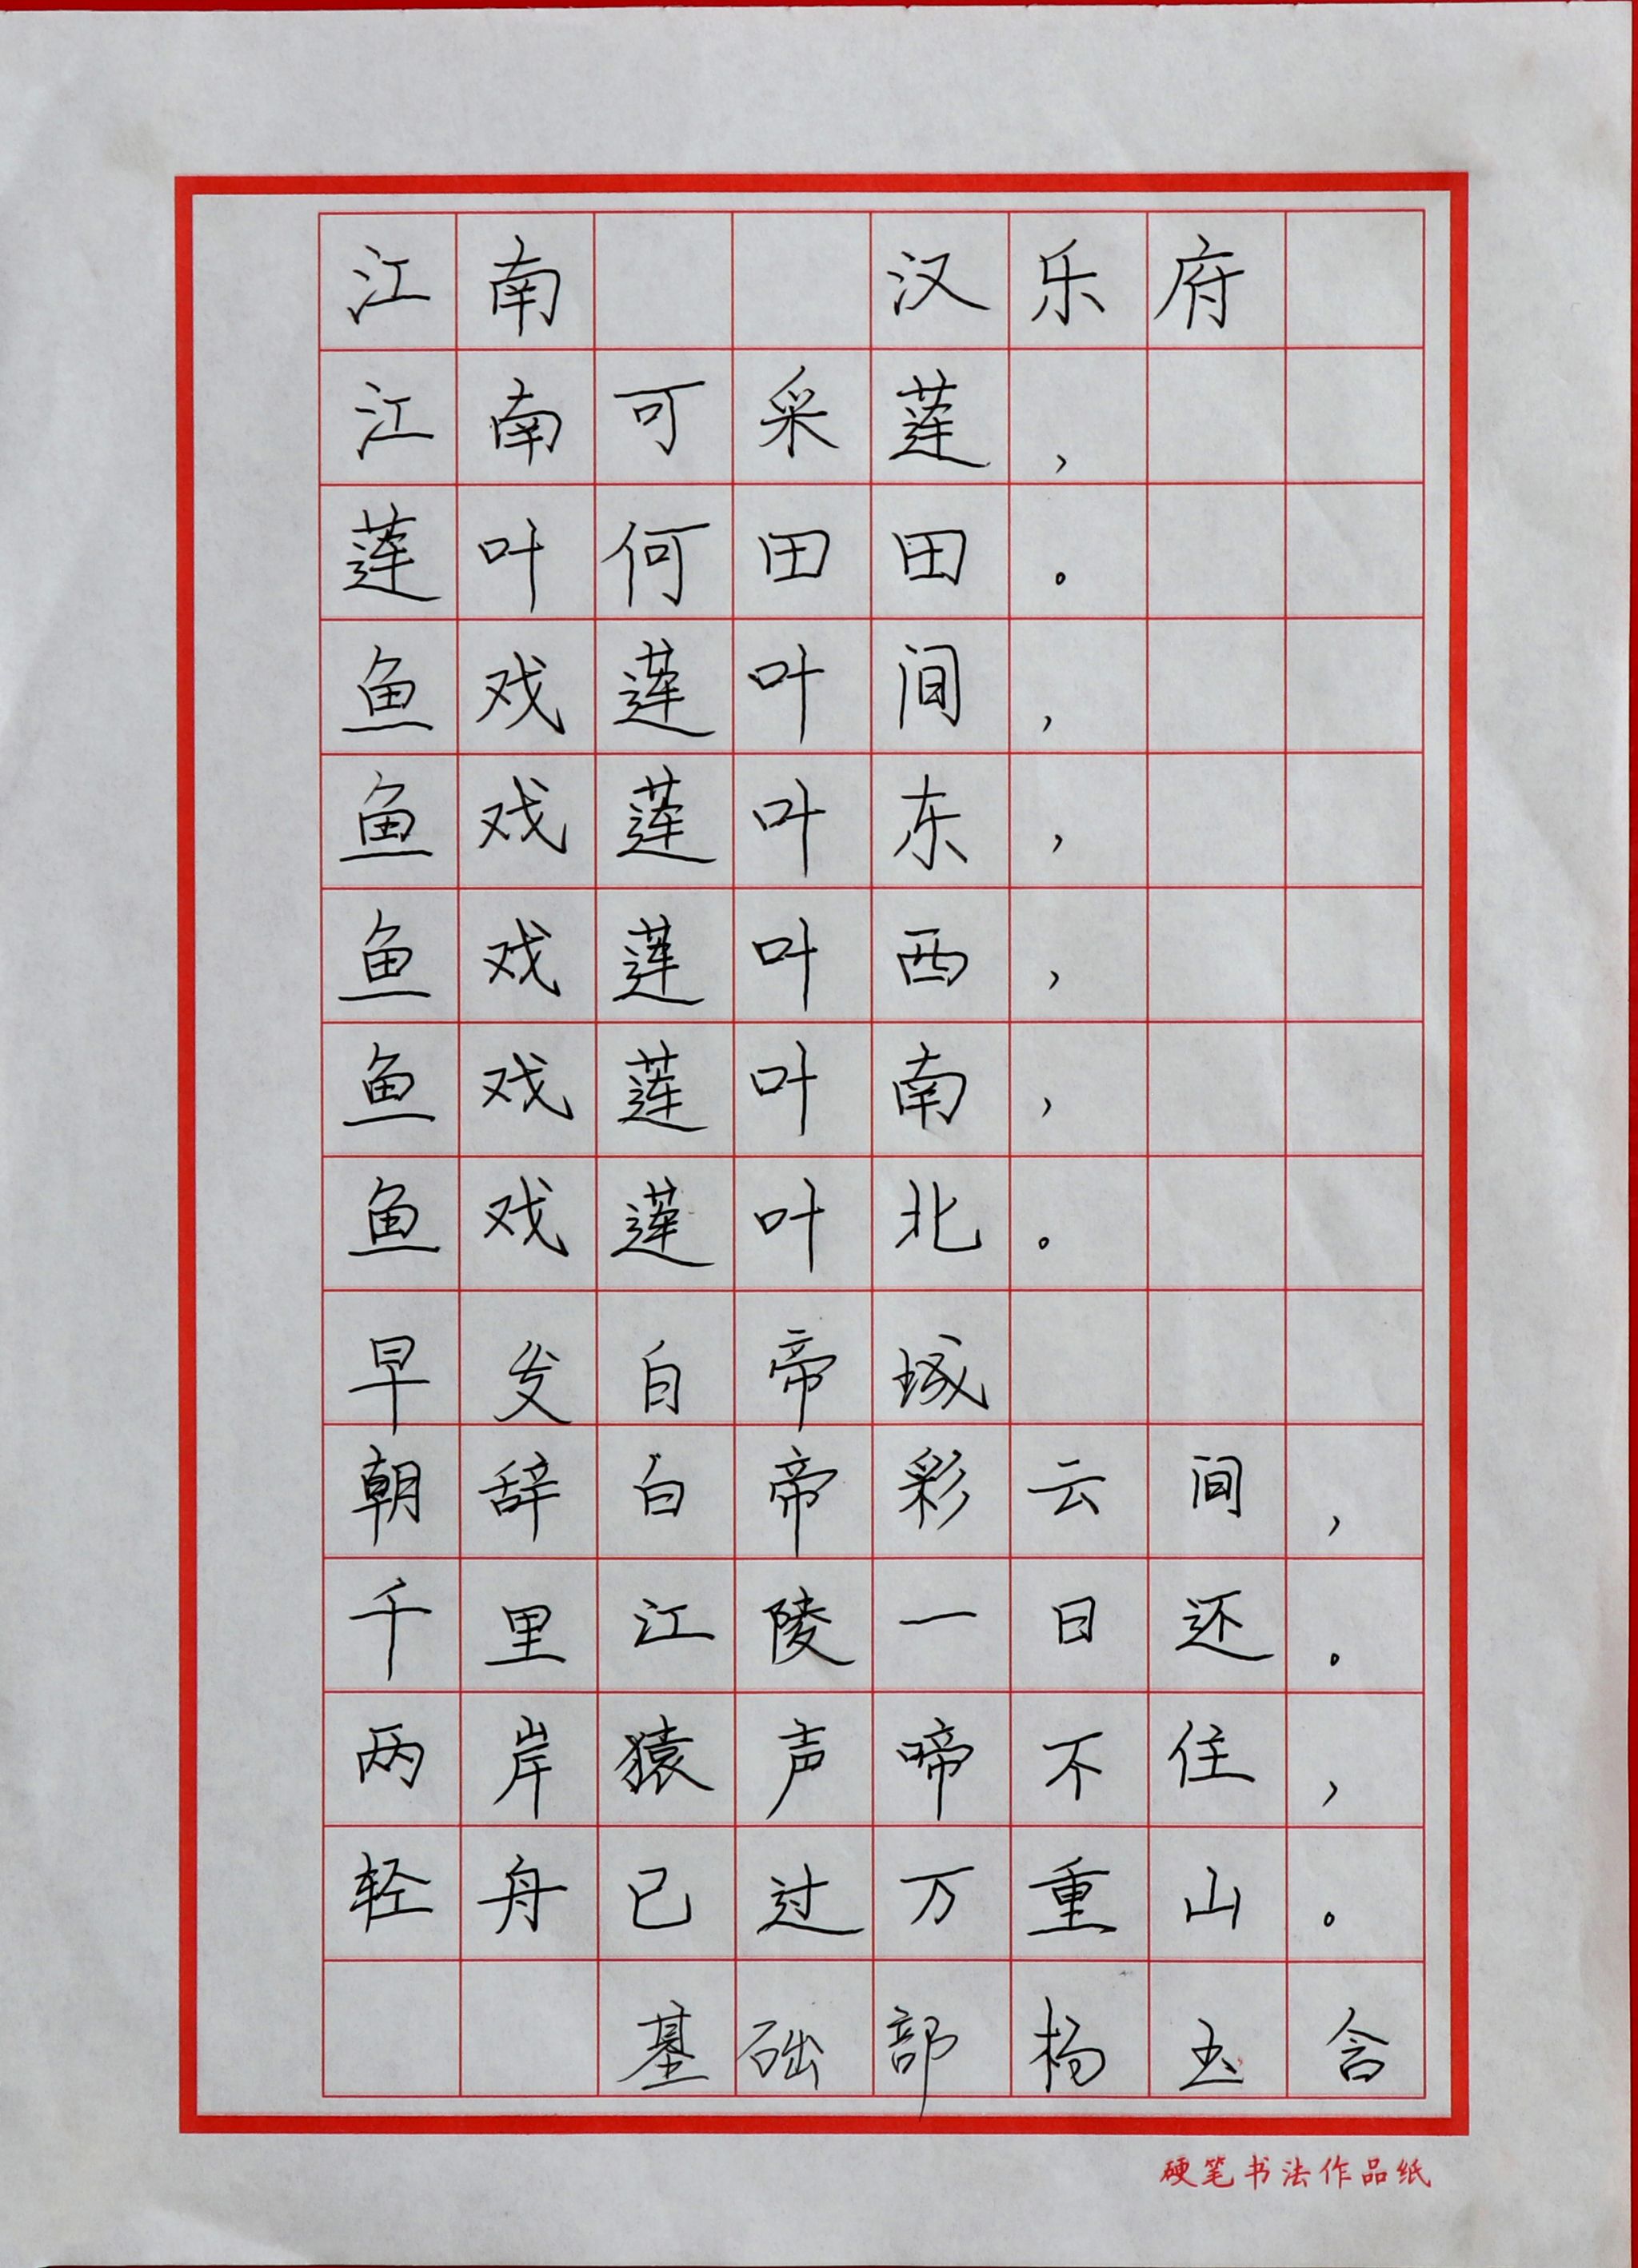 江南 汉乐府
江南可采莲，
莲叶何田田。
鱼戏莲叶间，
鱼戏莲叶东，
鱼戏莲叶西，
鱼戏莲叶南，
鱼戏莲叶北。
早发白帝城
朝辞白帝彩云间，
千里江陵一日还。
两岸猿声啼不住，
轻舟已过万重山。
基础部杨玉含
硬笔书法作品纸